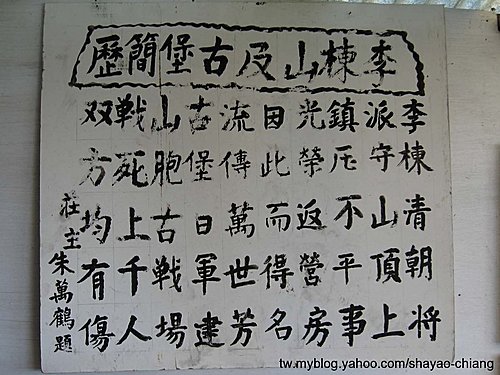 李棟山及古堡簡歷
李棟清朝将
派守山頂上
鎮压不平事
光榮返營房
因此而得名
流傳萬世芳
古堡日軍建
山胞古戦場
戦死上千人
双方均有傷
莊主朱萬鶴題
tw.myblog.yahoo.com/shayao-chiang